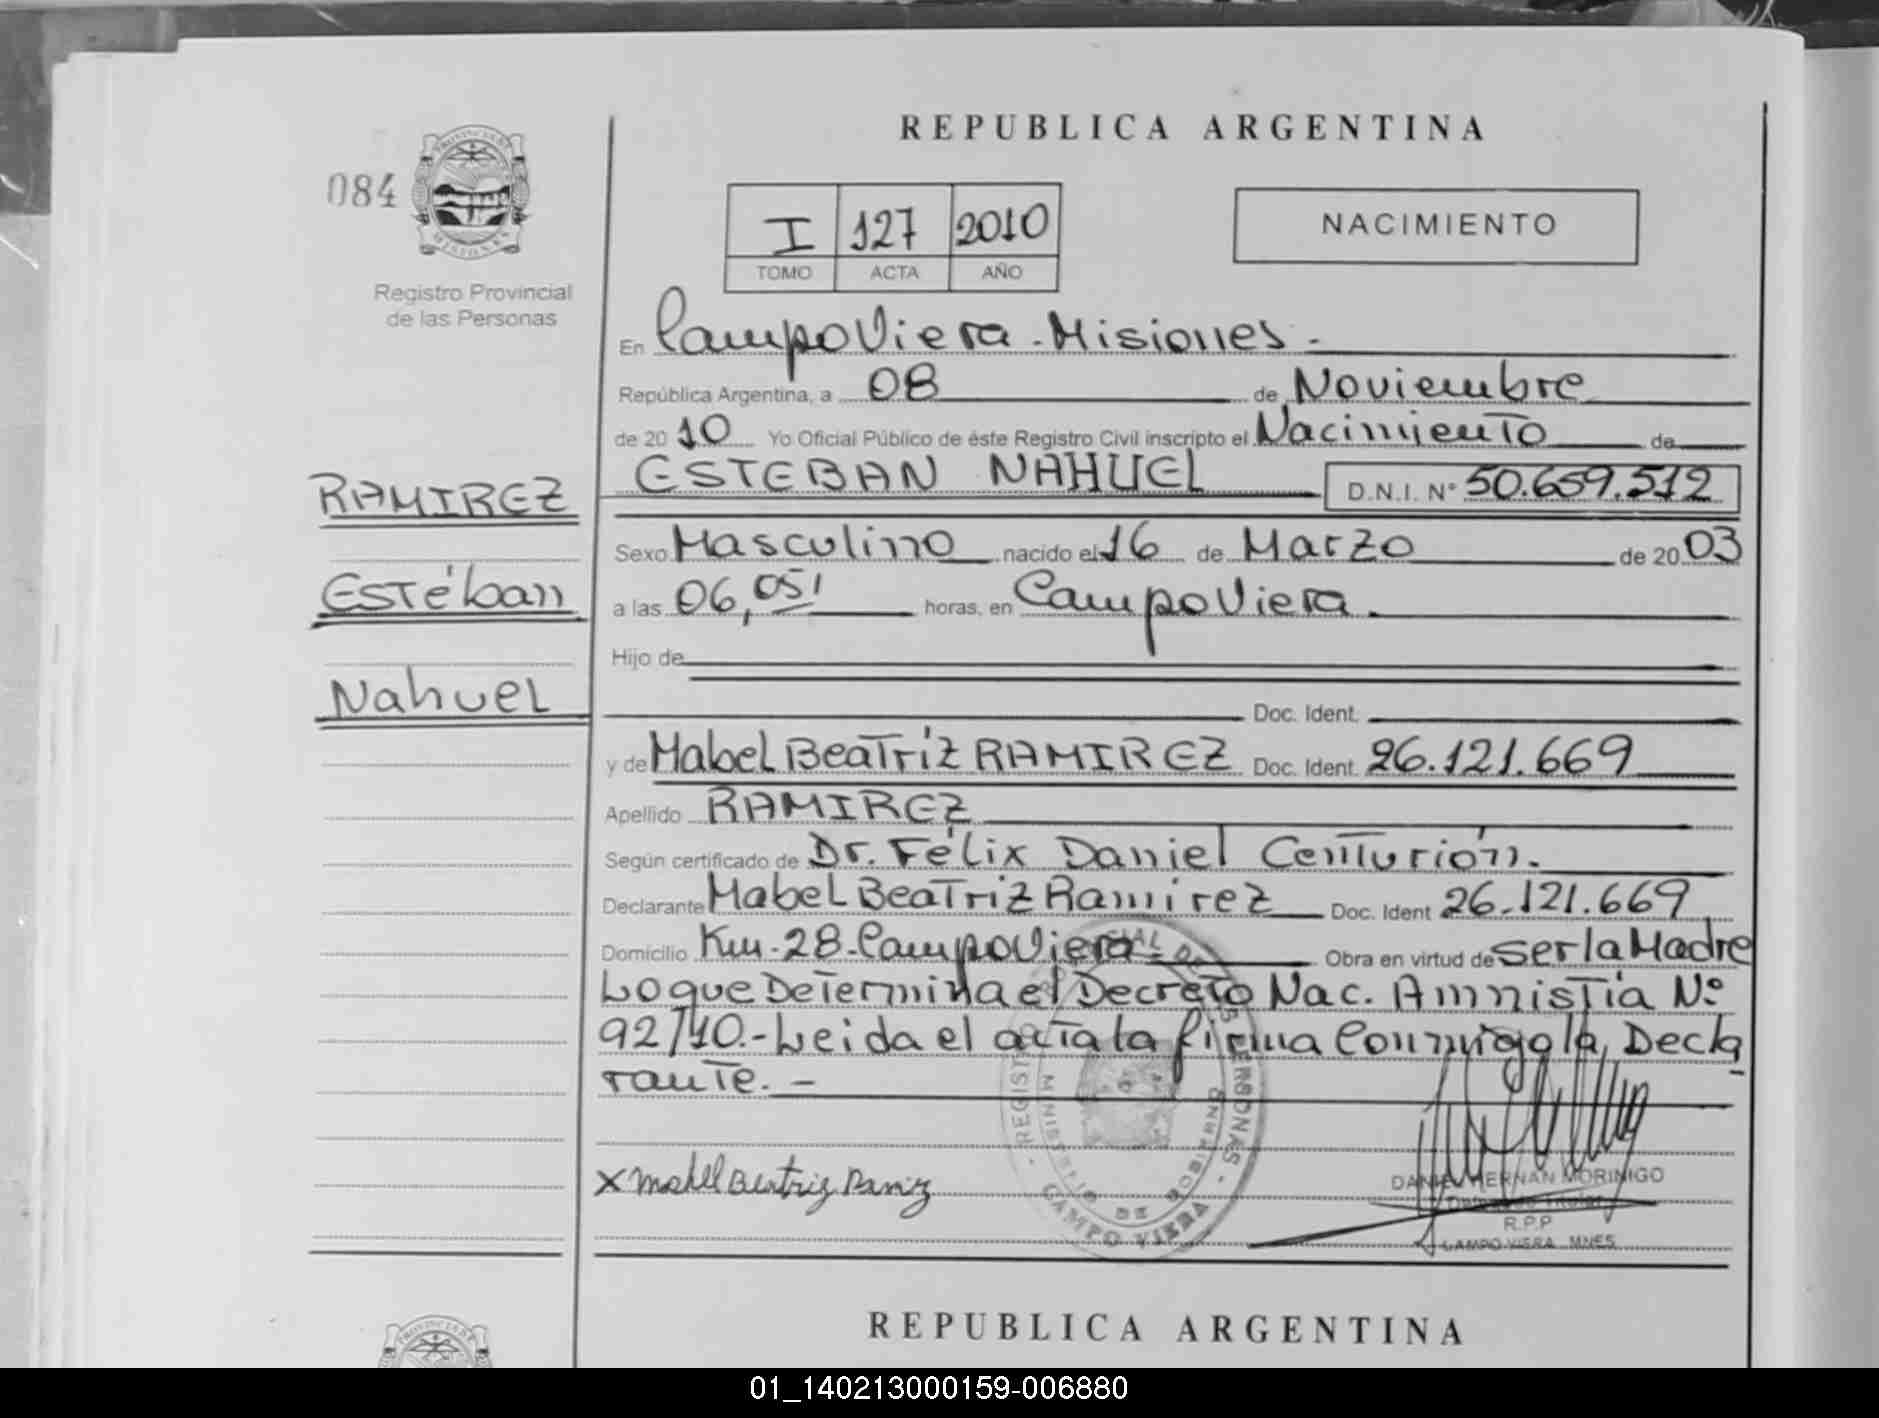 REPUBLICA ARGENTINA
084
PROVINCIA DE
MISIONES
Registro Provincial
de las Personas
I 127 2010
TOMO ACTA AÑO
NACIMIENTO
En Campo Viera - Misiones.-
República Argentina, a 08 de Noviembre
de 2010 Yo Oficial Público de éste Registro Civil inscripto el Nacimiento de
ESTEBAN NAHUEL D.N.I. N° 50.659.512
RAMIREZ
Estéban
Nahuel
Sexo Masculino nacido el 16 de Marzo de 2003
a las 06,05' horas, en Campo Viera.
Hijo de
Doc. Ident.
y de Mabel Beatriz RAMIREZ Doc. Ident. 26.121.669
Apellido RAMIREZ
Según certificado de Dr. Félix Daniel Centurión.
Declarante Mabel Beatriz Ramirez Doc. Ident 26.121.669
Domicilio Km-28-Campo Viera- Obra en virtud de ser la Madre
Lo que Determina el Decreto Nac. Amnistía N°
92/10.- Leida el acta la firma Conmigo la, Decla
rante. -
x Mabel Beatriz Ramirez
REGISTRO PROVINCIAL DE LAS PERSONAS
MINISTERIO DE GOBIERNO
CAMPO VIERA
DANIEL HERNAN MORINIGO
Delegado Titular
R.P.P
CAMPO VIERA MNES
REPUBLICA ARGENTINA
PROVINCIA DE
01_140213000159-006880